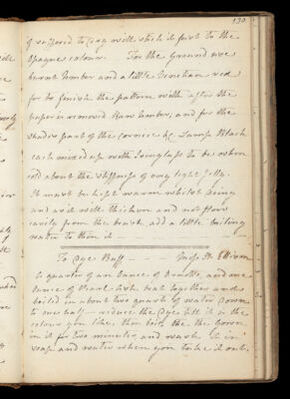 130
of
with which it first to the
colour. For the Ground use
burnt Umber and a little Venetian red
for to finish the pattern with after the
paper is removed Raw Umber, and for the
shadow part of the cornice &c Lamp Black
each mixed up with Isinglass to be when
cold about the stiffness of very light Jelly.
It must be kept warm whilst using
and as it will thicken and not flow
easily from the brush add a little boiling
water to them it
To Dye Buff Miss
A quarter of an Ounce of and one
Ounce of Pearl Ash beat together and
boiled in about two quarts of water down
to one half reduce the Dye till it is the
colour you like, then boil the
in it for two minutes and wash it in
soap and water when you take it out.